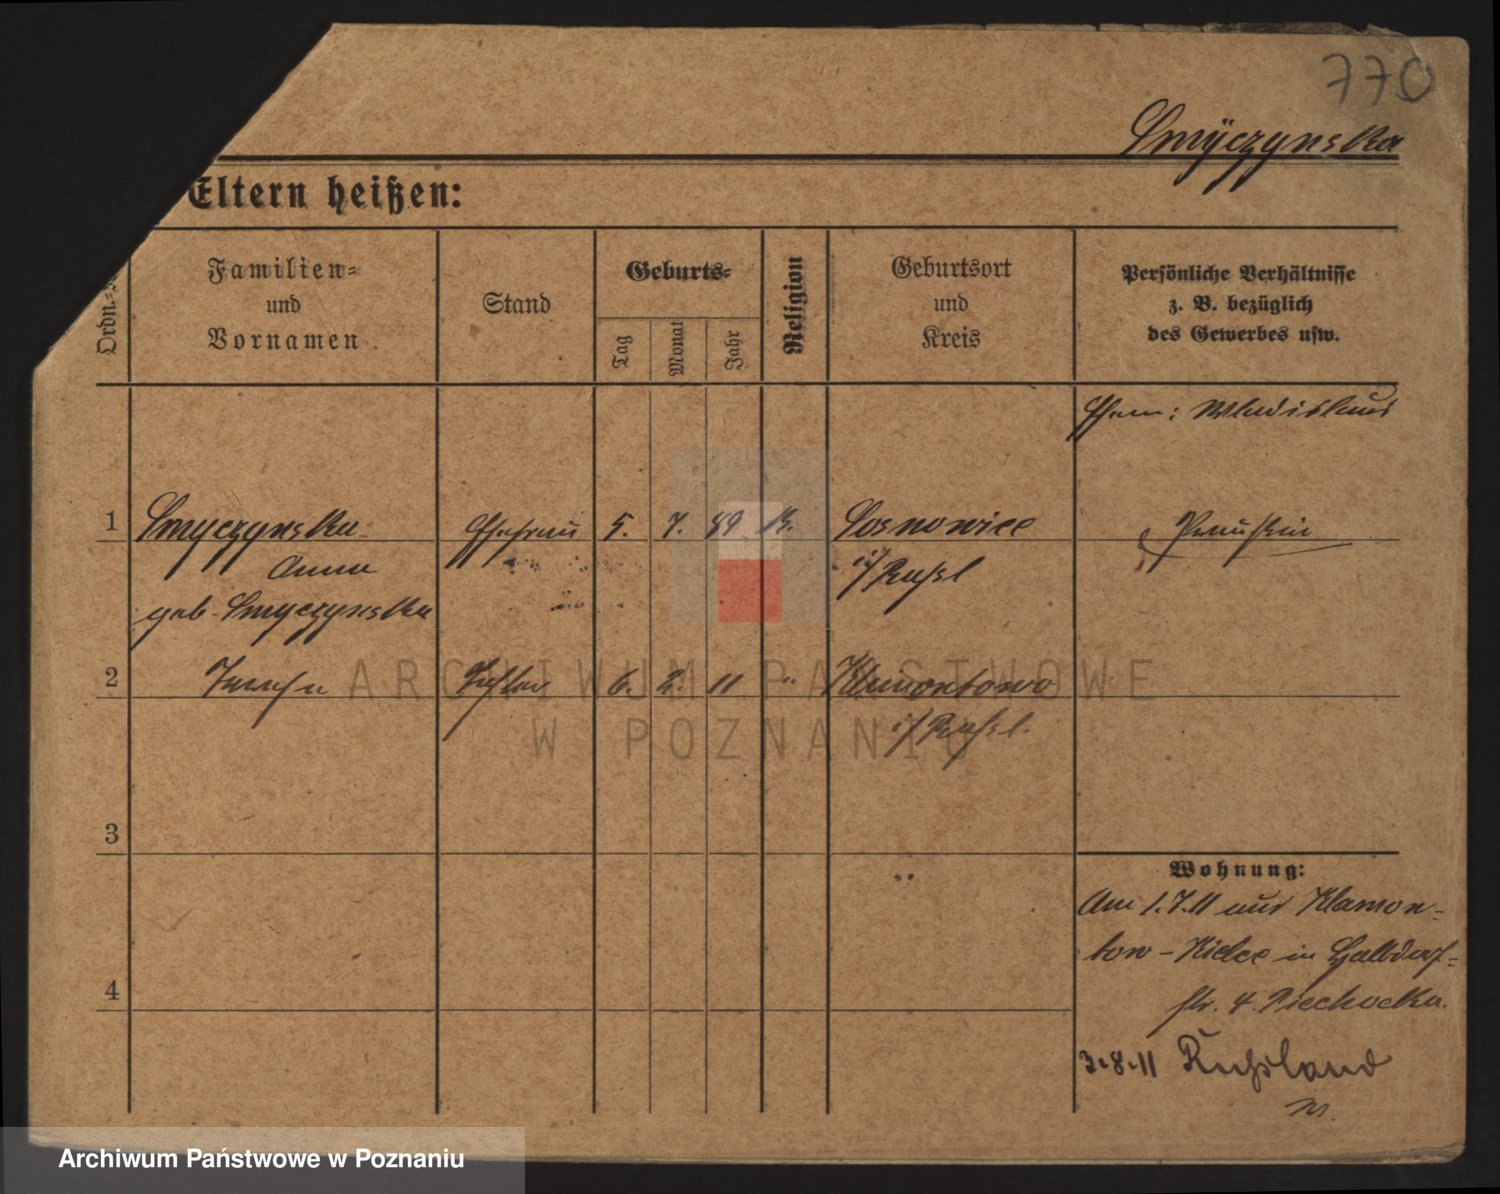 770
Smÿczynska
Eltern heißen:
Ordn.=
Familien=
und
Vornamen
Stand
Geburts=
Tag
Monat
Jahr
Religion
Geburtsort
und
Kreis
Persönliche Verhältnisse
z. B. bezüglich
des Gewerbes usw.
Ehem: Wladislaus
1
Smyczynska
Ehefrau
5.
7.
89
K.
Sosnowice
Anna
i/Rußl
geb. Smyczynska
2
Tochter
6.
2.
11
"
Klimontowo
i/Rußl.
3
4
Wohnung:
Am 1.7.11 aus Klamon-
tow - Kielce in Halbdorf=
str. 4. Piechocka.
3.8.11 Russland
ARCHIWUM PAŃSTWOWE
W POZNANIU
Archiwum Państwowe w Poznaniu